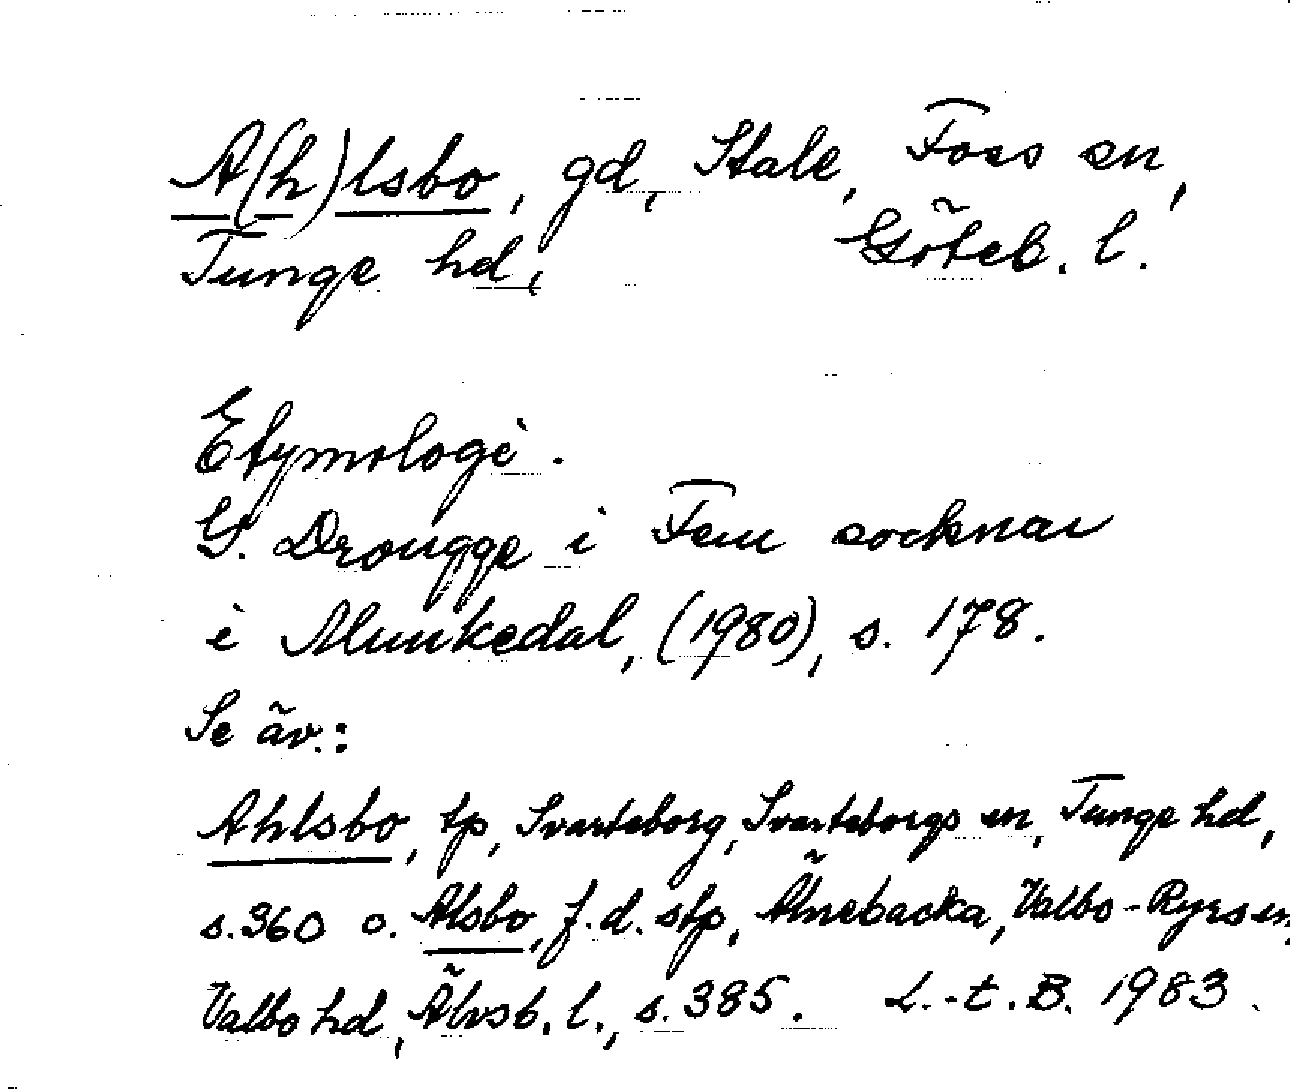 A(h)lsbo, gd, Stale, Foss sn,
Tunge hd, Göteb. l.
Etymologi.
G. Drougge i Fem socknar
i Munkedal, (1980), s. 178.
Se äv.:
Ahlsbo, tp, Svarteborg, Svarteborgs sn, Tunge hd,
s. 360 o. Alsbo, f.d. stp, Älnebacka, Valbo-Ryrs sn,
Valbo hd, Älvsb. l., s. 385. L.-t.B. 1983.